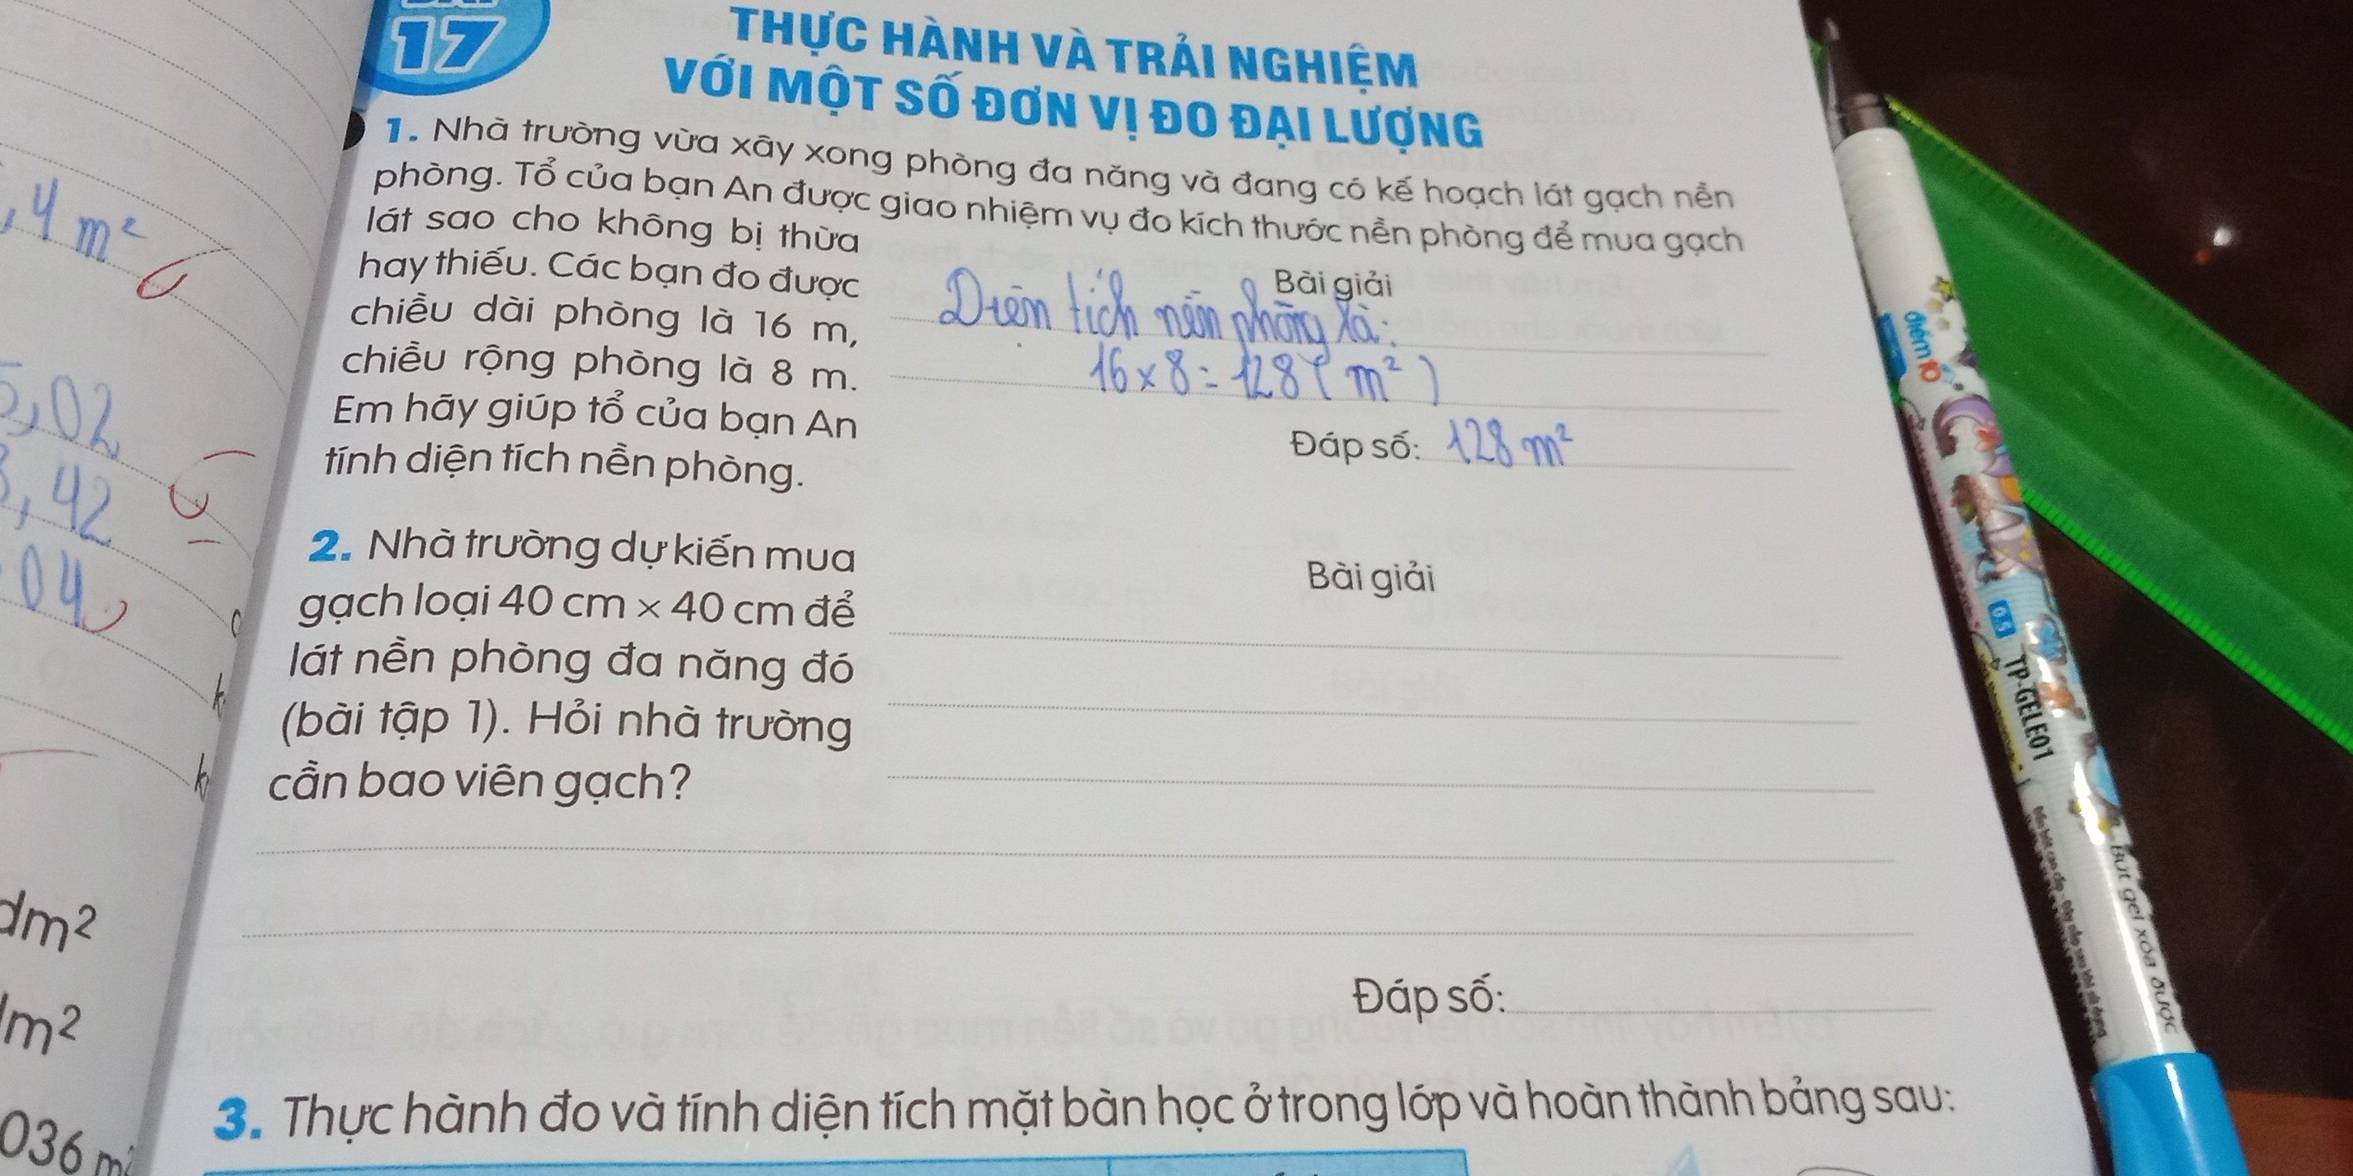 17
THỰC HÀNH VÀ TRẢI NGHIỆM
VỚI MỘT SỐ ĐƠN VỊ ĐO ĐẠI LƯỢNG
1. Nhà trường vừa xây xong phòng đa năng và đang có kế hoạch lát gạch nền
phòng. Tổ của bạn An được giao nhiệm vụ đo kích thước nền phòng để mua gạch
lát sao cho không bị thừa
hay thiếu. Các bạn đo được
chiều dài phòng là 16 m,
chiều rộng phòng là 8 m.
Em hãy giúp tổ của bạn An
tính diện tích nền phòng.
Bài giải
Diện tích nền phòng là:
16 × 8 = 128 ( m² )
Đáp số: 128 m²
2. Nhà trường dự kiến mua
gạch loại 40 cm × 40 cm để
lát nền phòng đa năng đó
(bài tập 1). Hỏi nhà trường
cần bao viên gạch?
Bài giải
Đáp số:
3. Thực hành đo và tính diện tích mặt bàn học ở trong lớp và hoàn thành bảng sau:
,4 m²
5,02
3,42
04
dm²
m²
036 m²
điểm 10
0.5 TP-GELE01
Bút gel xóa được